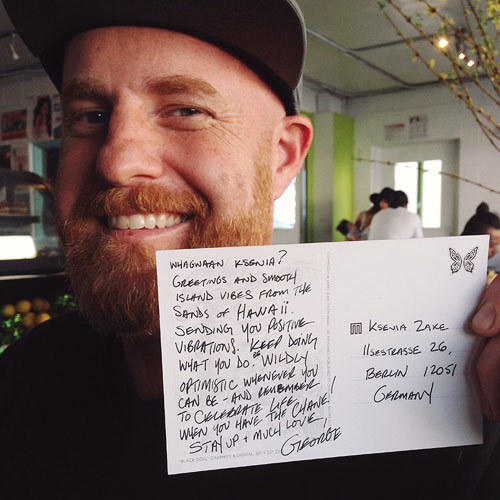 WHAGWAAN KSENIA?
GREETINGS AND SMOOTH
ISLAND VIBES FROM THE
SANDS OF HAWAII.
SENDING YOU POSITIVE
VIBRATIONS. KEEP DOING
WHAT YOU DO. BE WILDLY
OPTIMISTIC WHENEVER YOU
CAN BE - AND REMEMBER
TO CELEBRATE LIFE
WHEN YOU HAVE THE CHANCE!
STAY UP + MUCH LOVE,
GEORGE
KSENIA ZAKE
ILSESTRASSE 26,
BERLIN 12051
GERMANY